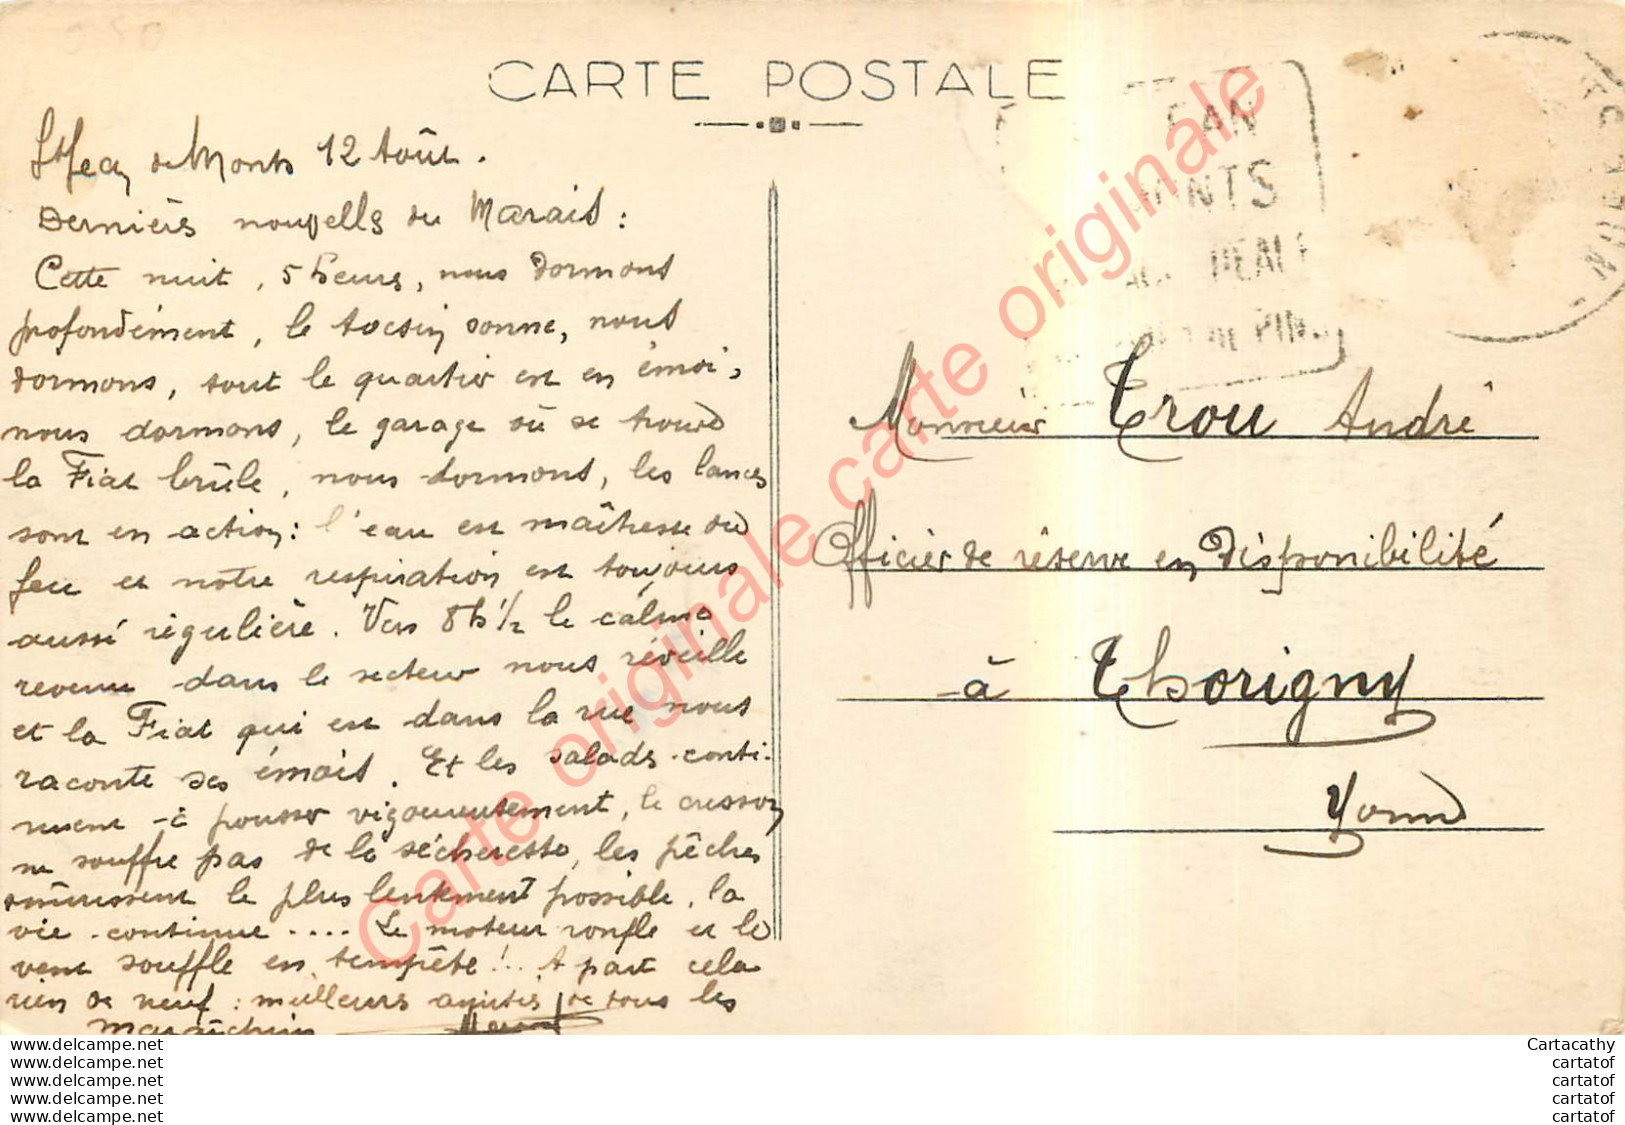 CARTE POSTALE
St Jean de Monts 12 Août.
Dernières nouvelles du Marais :
Cette nuit, 5 heures, nous dormons
profondément, le tocsin sonne, nous
dormons, tout le quartier est en émoi,
nous dormons, le garage où se trouve
la Fiat brûle, nous dormons, les lances
sont en action : l'eau est maîtresse du
feu et notre respiration est toujours
aussi régulière. Vers 8h 1/2 le calme
revenu dans le secteur nous réveille
et la Fiat qui est dans la rue nous
raconte ses émois. Et les salades conti-
nuent à pousser vigoureusement, le cresson
ne souffre pas de la sécheresse, les pêches
mûrissent le plus lentement possible, la
vie continue .... Le moteur ronfle et le
vent souffle en tempête !.. A part cela
rien de neuf : meilleurs amitiés de tous les
maraîchins
EAN
MONTS
IDEALE
PINS
Monsieur Trou André
Officier de réserve en Disponibilité
à Thorigny
Yonne
Carte originale carte originale carte originale
www.delcampe.net Cartacathy
www.delcampe.net cartatof
www.delcampe.net cartatof
www.delcampe.net cartatof
www.delcampe.net cartatof